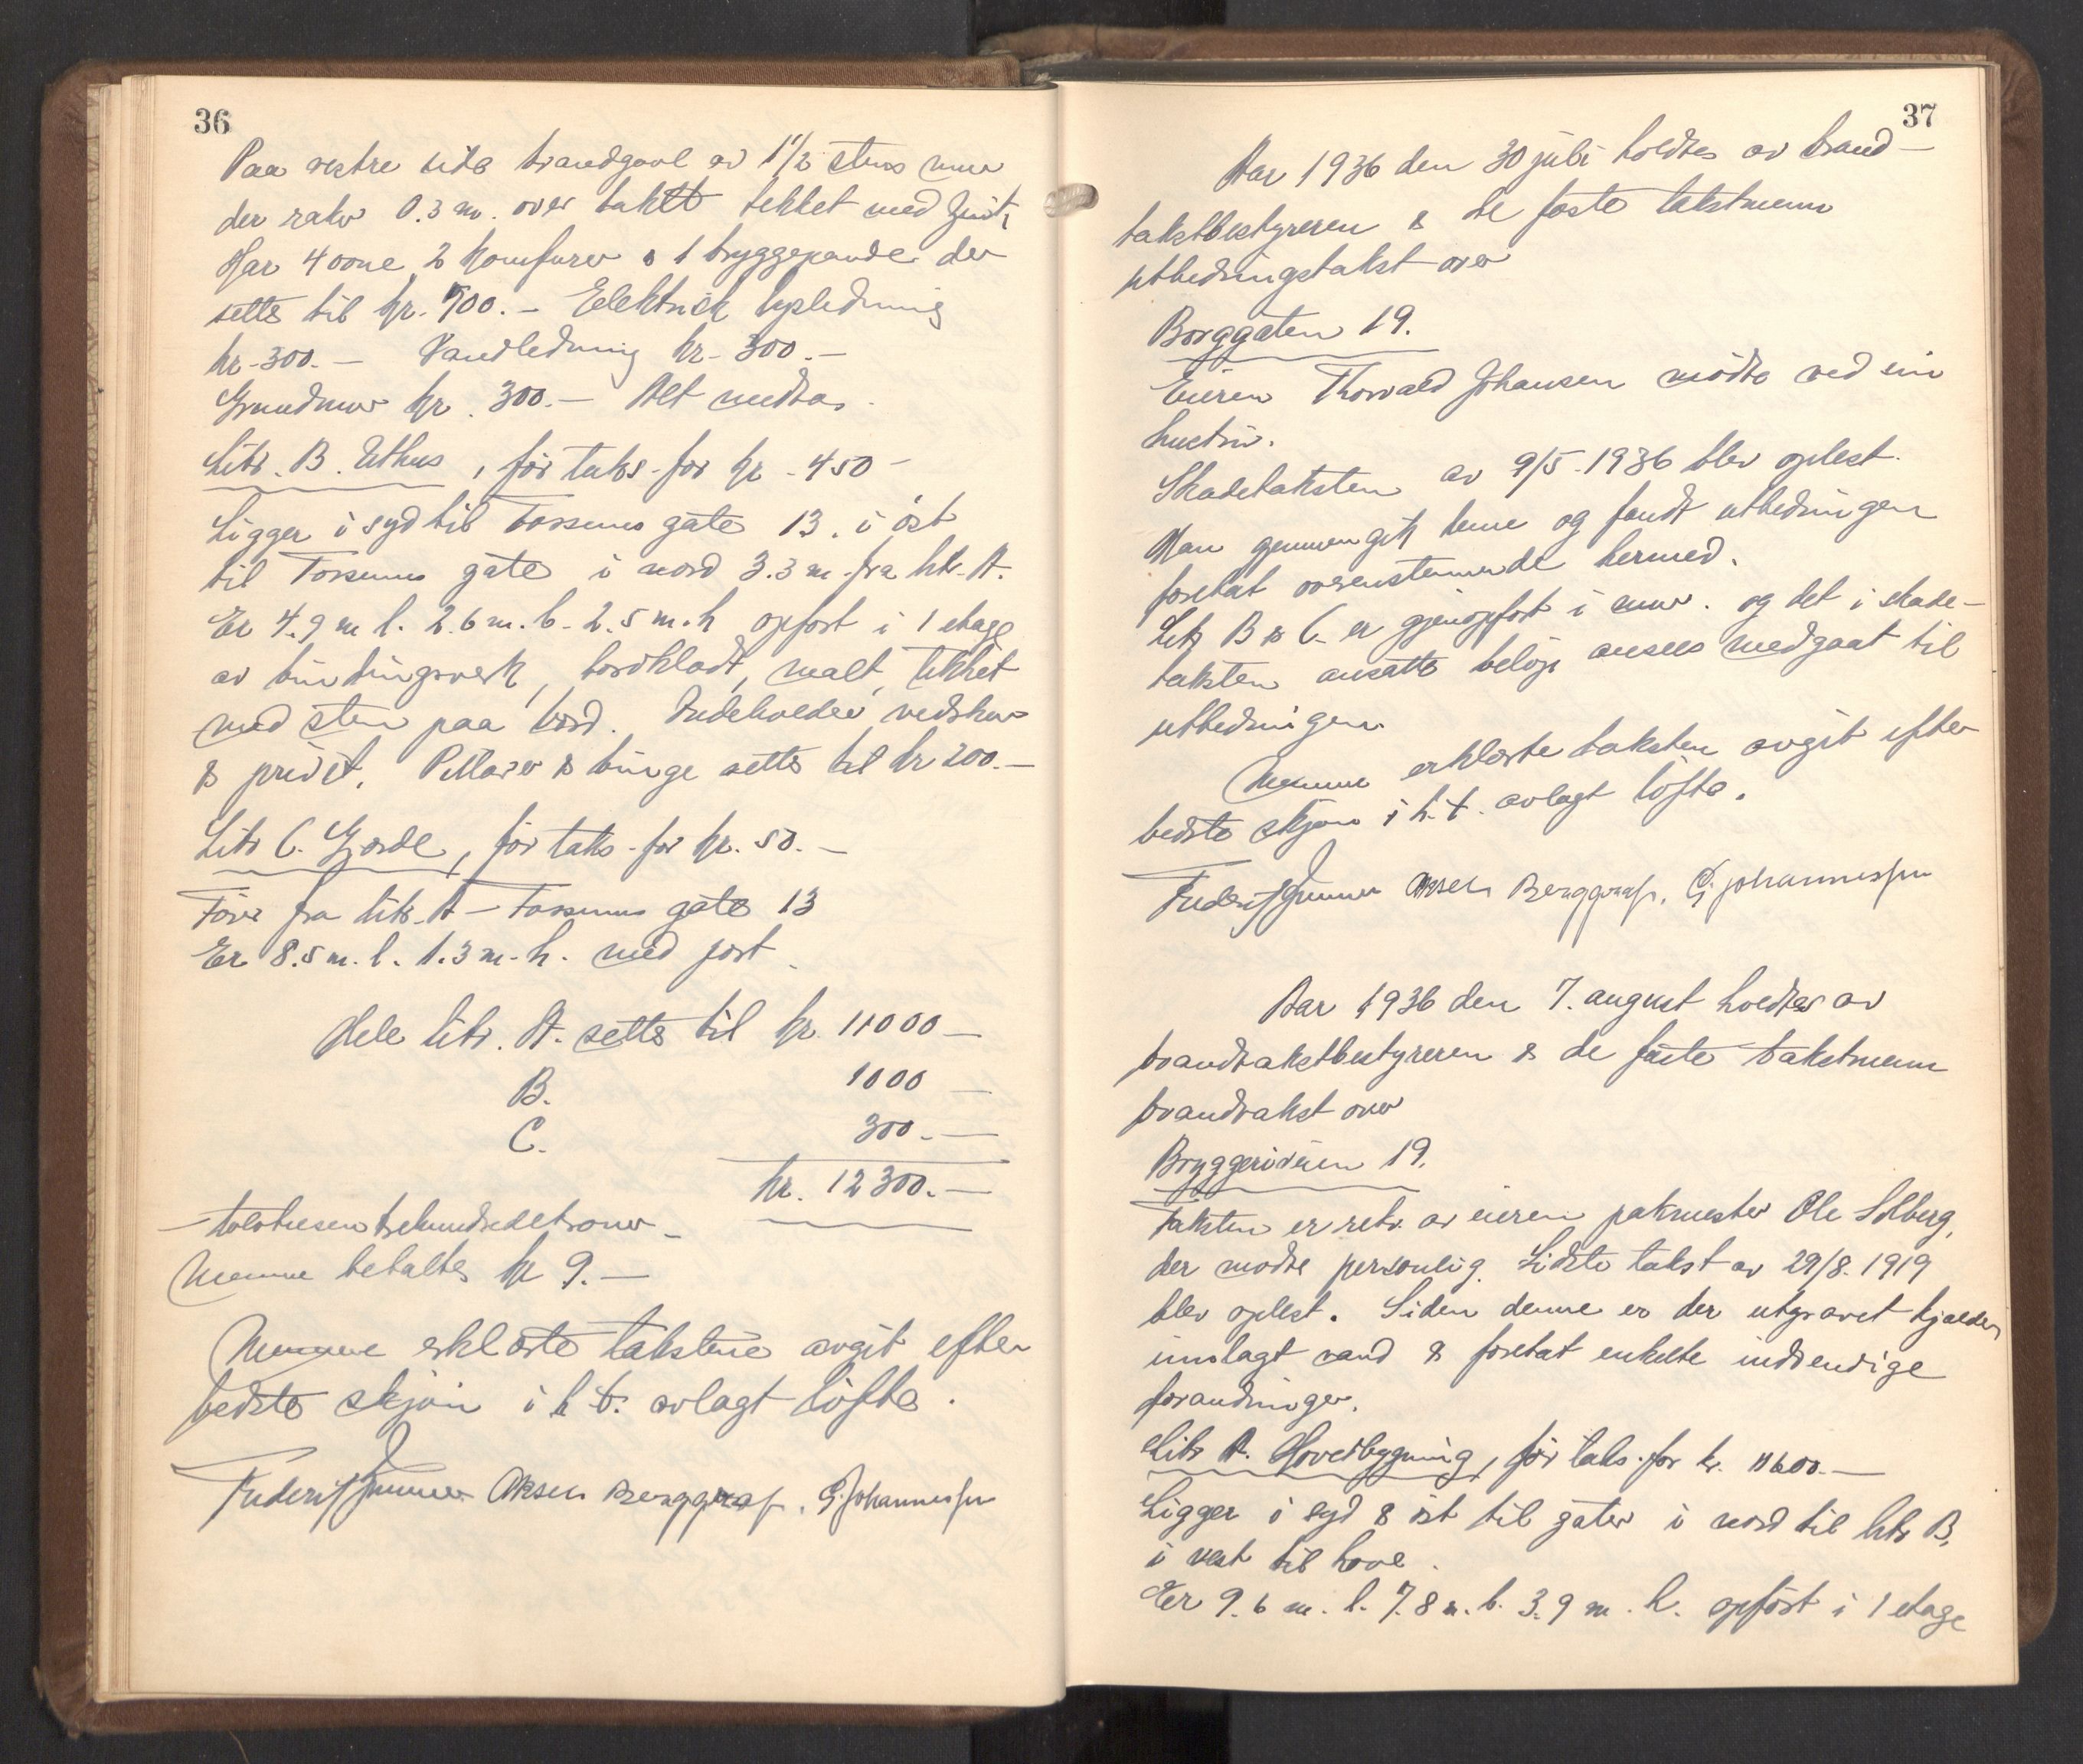 36
Paa vestre side brandgavl av 1 1/2 stens mur
der raker 0.3 m. over taket tekket med zink,
Har 4 ovne 2 komfurer & 1 bryggepande der
settes til kr. 700.- Elektrisk lysledning
kr. 300.- Vandledning kr. 300.-
Grundmur kr. 300.- Alt medtas.
Litr. B. Uthus, för taks. for kr. 450-
Ligger i syd til Fossums gate 13. i öst
til Fossums gate i nord 3.3 m. fra litr. A.
Er 4.9 m l. 2.6 m. b. 2.5 m. h opfört i 1 etage
av bindingsverk, bordkledt, malt, tekket
med sten paa bord. Indeholder vedskur
& privet. Pillarer & binge settes til kr 200.-
Litr C. Gjerde, för taks. for kr. 50.-
Förer fra litr. A - Fossums gate 13
Er 8.5 m. l. 1.3 m. h. med port.
Hele litr. A. settes til kr. 11000-
B. 1000-
C. 300.-
kr. 12300.-
- tolvtusentrehundredekroner -
Mennene betaltes kr 9.-
Mennene erklærte takstene avgit efter
bedste skjön i h. t. avlagt löfte.
Aksel Berggraf. G. Johannessen
37
Aar 1936 den 30 juli holdtes av brand-
takstbestyreren & de faste takstmenn
utbedringstakst over
Borggaten 19.
Eieren Thorvald Johansen mödte ved sin
hustru.
Skadetaksten av 9/5-1936 blev oplest.
Man gjennemgik denne og fandt utbedringen
foretat overenstemmende hermed.
Litr B & C. er gjenopfört i mur. og det i skade-
taksten ansatte belöp ansees medgaat til
utbedringen.
Mennene erklærte taksten avgit efter
bedste skjön i h. t. avlagt löfte.
Aksel Berggraf. G. Johannessen
Aar 1936 den 7. august holdtes av
brandtakstbestyreren & de faste takstmenn
brandtakst over
Bryggeriveien 19.
Taksten er rekv. av eieren pakmester Ole Solberg,
der mödte personlig. Sidste takst av 29/8. 1919
blev oplest. Siden denne er der utgravet kjelder,
innlagt vand & foretat enkelte indvendige
forandringer.
Litr A. Hovedbygning, för taks. for kr. 11600.-
Ligger i syd & öst til gater i nord til litr B.
i vest til have.
Er 9.6 m. l. 7.8 m. b. 3.9 m. h. opfört i 1 etage